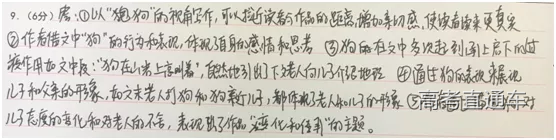 9.(6分)答:①以"狗"的视角写作,可以拉近读者与作品的距离,增加亲切感,使读者读来更真实
②作者借文中"狗"的行为和表现,体现了自身的感情和思考 ③狗的在文中多次起到到上启下的过
操作用如文中段:"狗在山岩上高叫着",自然地引出下文老人向儿子介绍地理 ④通过狗的表现来展现
儿子和父亲的形象,如文末老人对狗和狗亲近儿子,都体现了老人和儿子的形象 ⑤
儿子态度的变化和对老人的不舍,表现出了作品"变化和传承"的主题。
高锗直通车